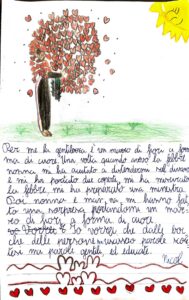 Per me la gentilezza è un mazzo di fiori a for
ma di cuore. Una volta quando avevo la febbre
nonna, mi ha aiutato a distendermi sul divano
e mi ha portato da coperta, mi ha misurato
la febbre, mi ha preparato una minestra.
Poi nonna e mi hanno fat
to una sorpresa portandomi un maz
zo di fiori a forma di cuore.
Io vorrei che dalla boc
ca delle persone uscissero parole
ma parole gentili, ed educate.
Nicole